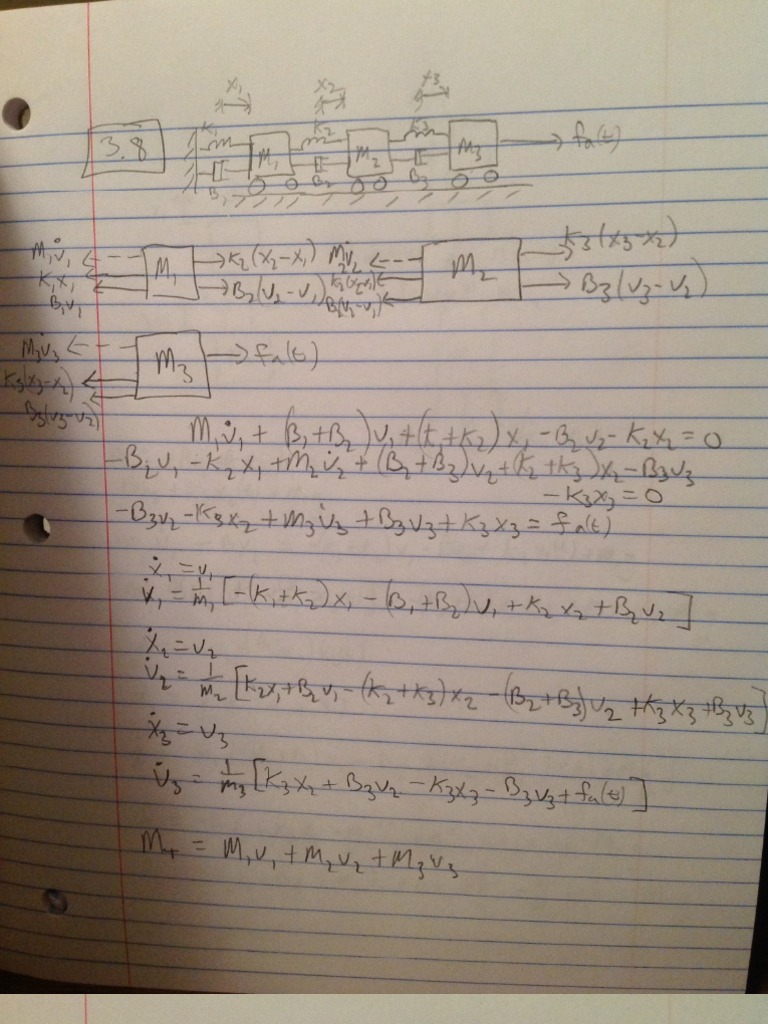 x₁ x₂ x₃
3.8
K₁ K₂ K₃
M₁ M₂ M₃ fa(t)
B₁ B₂ B₃
M₁v̇₁ M₁ K₂(x₂-x₁) M₂v̇₂ M₂ K₃(x₃-x₂)
K₁x₁ B₂(v₂-v₁) B₃(v₃-v₂)
B₁v₁ B₂(v₂-v₁)
M₃v̇₃ M₃ fa(t)
K₃(x₃-x₂)
B₃(v₃-v₂)
M₁v̇₁ + (B₁+B₂)v₁ + (K₁+K₂)x₁ - B₂v₂ - K₂x₂ = 0
-B₂v₁ - K₂x₁ + M₂v̇₂ + (B₂+B₃)v₂ + (K₂+K₃)x₂ - B₃v₃
- K₃x₃ = 0
-B₃v₂ - K₃x₂ + M₃v̇₃ + B₃v₃ + K₃x₃ = fa(t)
ẋ₁ = v₁
v̇₁ = 1/m₁ [-(K₁+K₂)x₁ - (B₁+B₂)v₁ + K₂x₂ + B₂v₂]
ẋ₂ = v₂
v̇₂ = 1/m₂ [K₂x₁ + B₂v₁ - (K₂+K₃)x₂ - (B₂+B₃)v₂ + K₃x₃ + B₃v₃]
ẋ₃ = v₃
v̇₃ = 1/m₃ [K₃x₂ + B₃v₂ - K₃x₃ - B₃v₃ + fa(t)]
M_T = M₁v₁ + M₂v₂ + M₃v₃